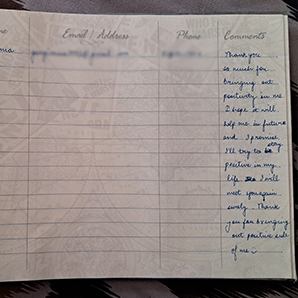 me Email / Address Phone Comments
nia
Thank you
so much for
bringing out
positivity in me
I hope it will
help me in future
and I promise
I'll try to be stay
positive in my
life I will
meet you again
surely. Thank
you for bringing
out positive side
of me :)